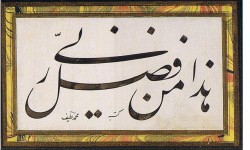 هذا من فضل ربی
کتبه محمد لطیف